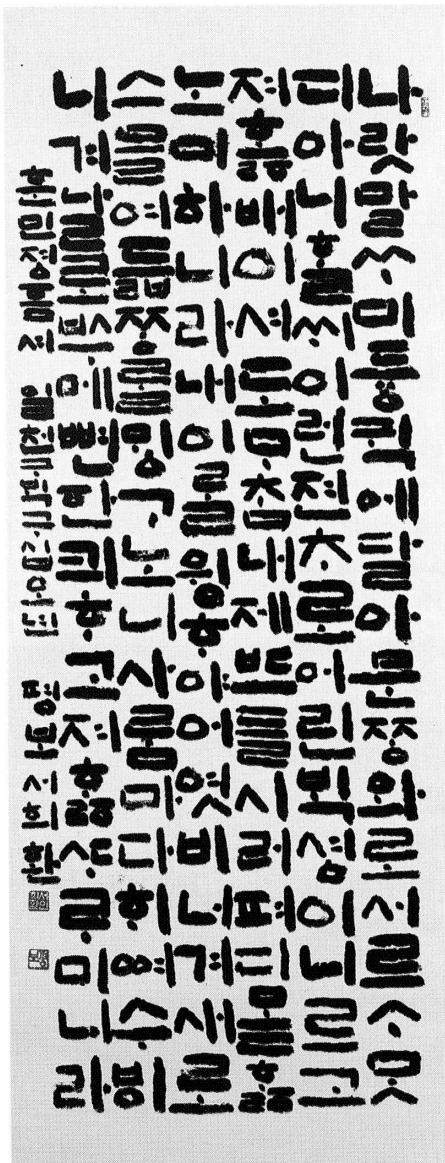 나랏말ᄊᆞ미듕귁에달아문ᄍᆞᆼ와로서르ᄉᆞᄆᆞᆺ
디아니ᄒᆞᆯᄊᆡ이런젼ᄎᆞ로어린ᄇᆡᆨ셔ᇰ이니르고
져ᄒᆞᇙ배이셔도ᄆᆞᄎᆞᆷ내제ᄠᅳ들시러펴디몯ᄒᆞᇙ
노미하니라내이ᄅᆞᆯ윙ᄒᆞ야어엿비너겨새로
스믈여듧ᄍᆞᆼᄅᆞᆯᄆᆡᇰᄀᆞ노니사ᄅᆞᆷ마다ᄒᆡᅇᅧ수ᄫᅵ
니겨날로ᄡᅮ메뼌한킈ᄒᆞ고져ᄒᆞᇙᄯᆞᄅᆞ미니라
훈민정음 일천구백구십이년 평보 서희환